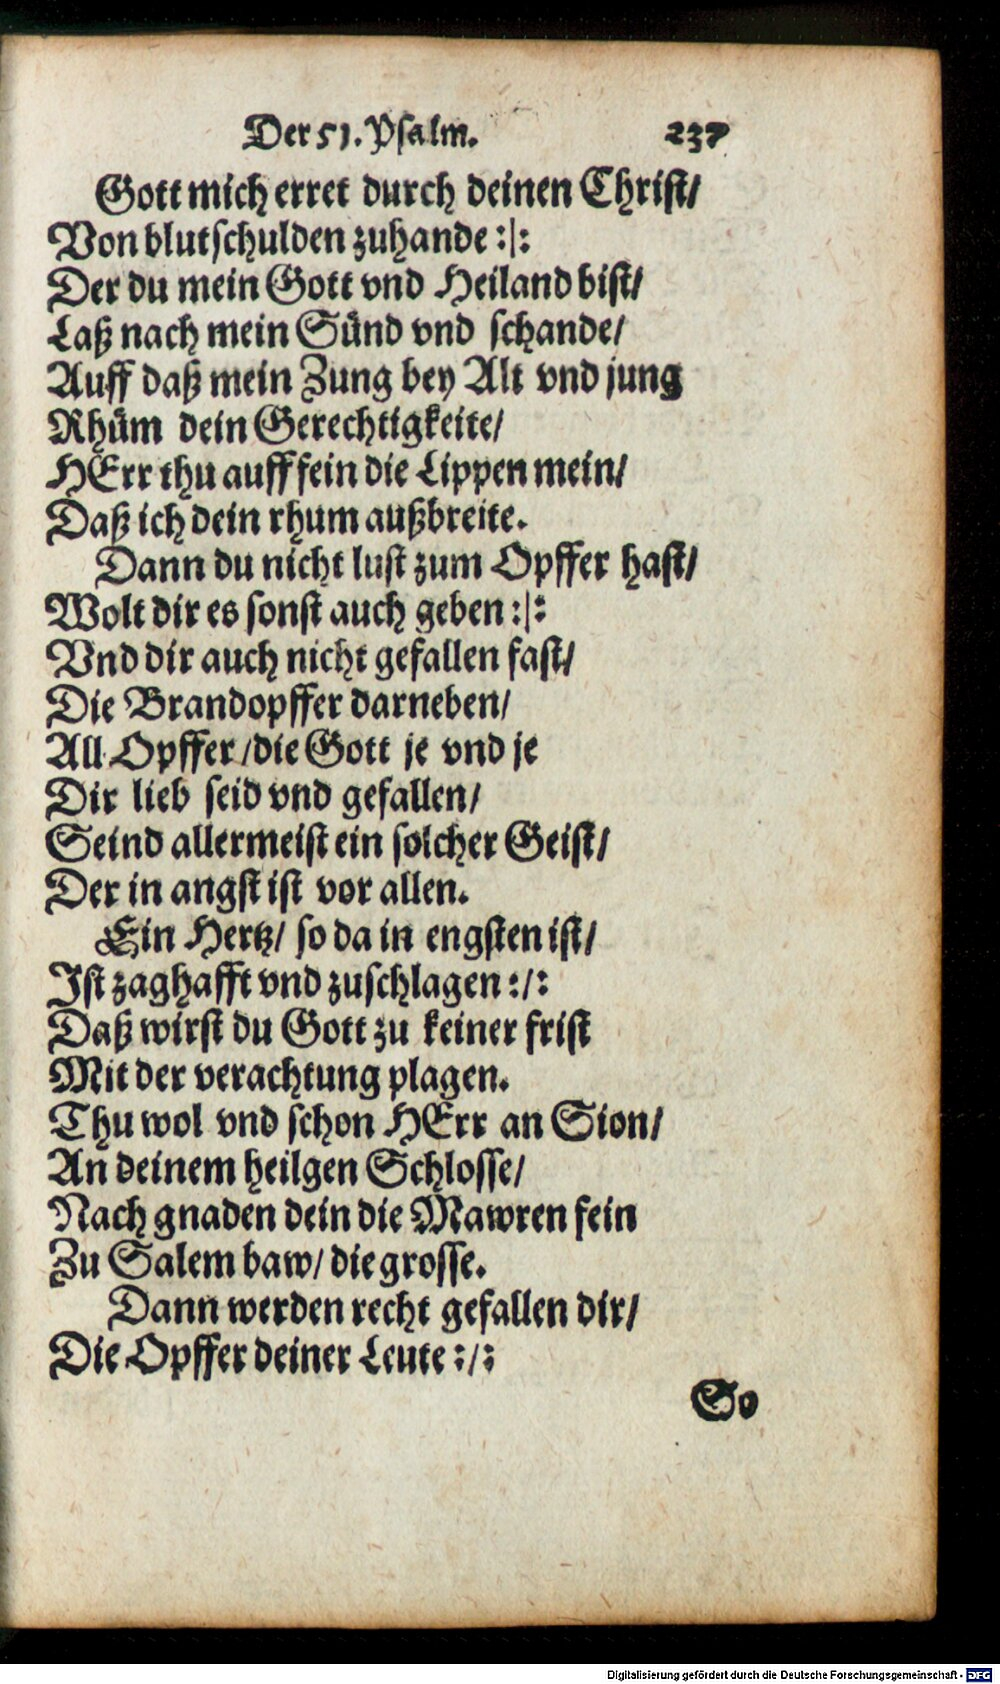 Der 51. Psalm. 237
Gott mich erret durch deinen Christ/
Von blutschulden zuhande :|:
Der du mein Gott vnd Heiland bist/
Laß nach mein Sünd vnd schande/
Auff daß mein Zung bey Alt vnd jung
Rhüm dein Gerechtigkeite/
HErr thu auff fein die Lippen mein/
Daß ich dein rhum außbreite.
Dann du nicht lust zum Opffer hast/
Wolt dir es sonst auch geben :|:
Vnd dir auch nicht gefallen fast/
Die Brandopffer darneben/
All Opffer/die Gott je vnd je
Dir lieb seid vnd gefallen/
Seind allermeist ein solcher Geist/
Der in angst ist vor allen.
Ein Hertz/ so da in engsten ist/
Ist zaghafft vnd zuschlagen :/:
Daß wirst du Gott zu keiner frist
Mit der verachtung plagen.
Thu wol vnd schon HErr an Sion/
An deinem heilgen Schlosse/
Nach gnaden dein die Mawren fein
Zu Salem baw/ die grosse.
Dann werden recht gefallen dir/
Die Opffer deiner Leute :/:
So
Digitalisierung gefördert durch die Deutsche Forschungsgemeinschaft - DFG